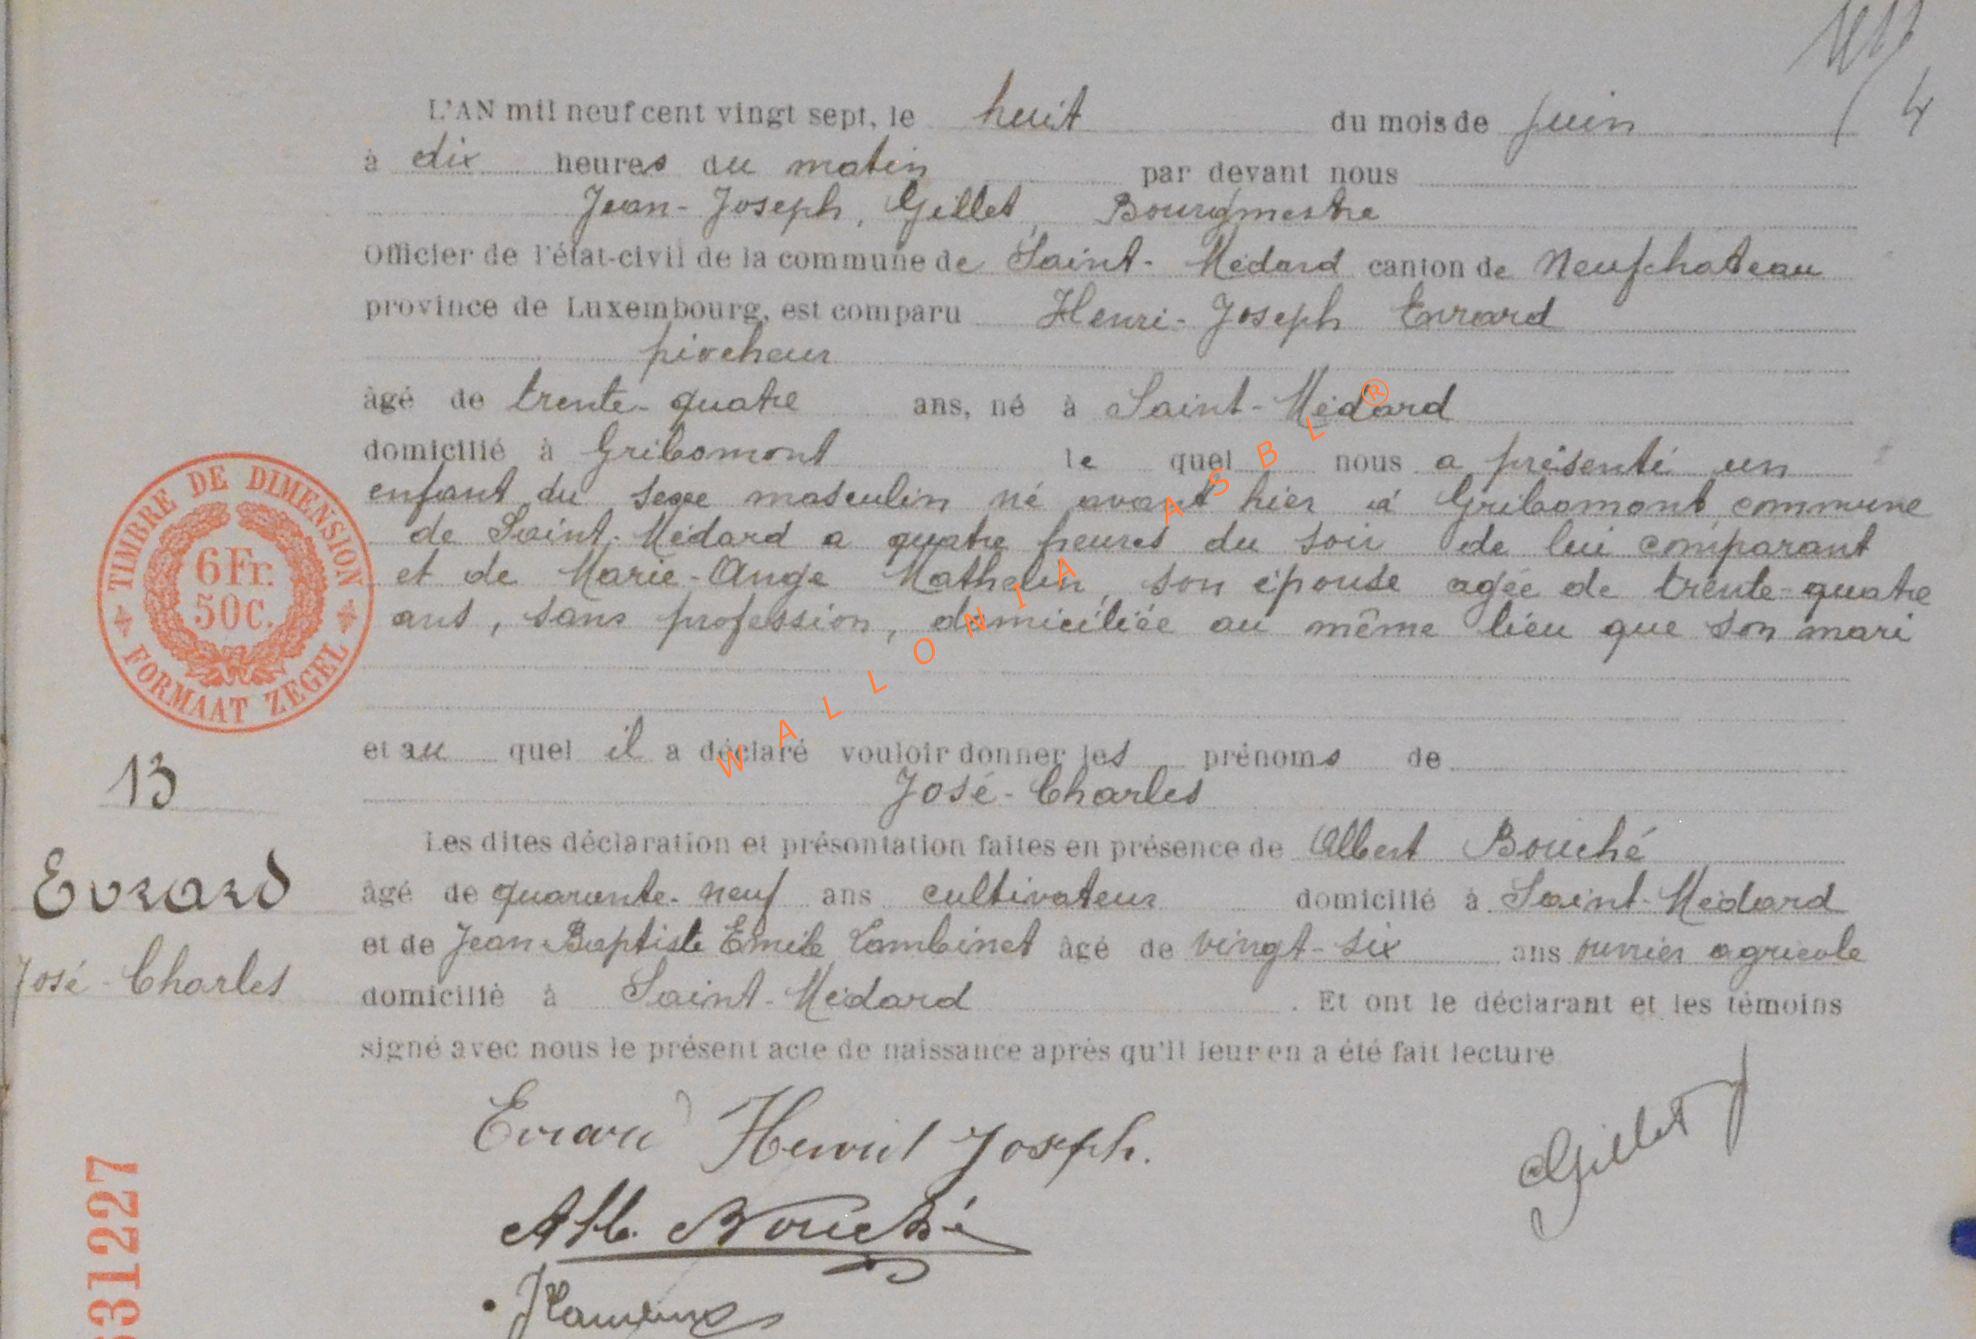 L'AN mil neuf cent vingt sept, le huit du mois de juin
à dix heures du matin par devant nous
Jean-Joseph, Gillet, Bourgmestre
Officier de l'état-civil de la commune de Saint-Médard canton de Neufchateau
province de Luxembourg, est comparu Henri-Joseph Evrard
piocheur
âgé de trente-quatre ans, né à Saint-Médard
domicilié à Gribomont le quel nous a présenté un
enfant du sexe masculin né avant hier à Gribomont commune
de Saint-Médard a quatre heures du soir de lui comparant
et de Marie-Ange Mathelin, son épouse agée de trente-quatre
ans, sans profession, domiciliée au même lieu que son mari
et au quel il a déclaré vouloir donner les prénoms de
José-Charles
Les dites déclaration et présontation faites en présence de Albert Bouché
âgé de quarante-neuf ans cultivateur domicilié à Saint-Médard
et de Jean-Baptiste Emile Lambinet âgé de vingt-six ans ouvrier agricole
domicilié à Saint-Médard. Et ont le déclarant et les témoins
signé avec nous le présent acte de naissance après qu'il leur en a été fait lecture
Evrard Henri Joseph.
Gillet J
Alb. Bouché
TIMBRE DE DIMENSION
6 Fr.
50 c.
FORMAAT ZEGEL
13
Evrard
José-Charles
31227
WALLONIA ASBL ®